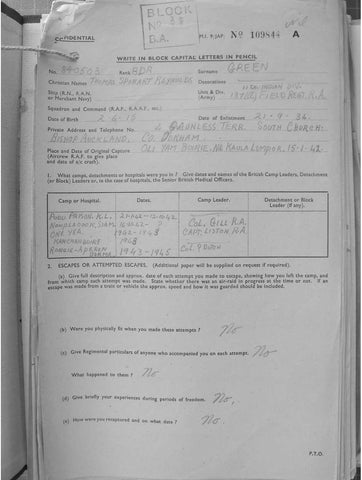 BLOCK
No 38
B.A.
CONFIDENTIAL
M.I. 9/JAP/ No 109844 A
WRITE IN BLOCK CAPITAL LETTERS IN PENCIL
No. 840503 Rank BDR Surname GREEN
Christian Names THOMAS STEWART REYNOLDS Decorations
Ship (R.N., R.A.N. or Merchant Navy)
Unit & Div. (Army) 11TH INDIAN DIV. FIELD REGT. R.A
Squadron and Command (R.A.F., R.A.A.F., etc.)
Date of Birth 2.6.15 Date of Enlistment 21-9-36.
Private Address and Telephone No. 2 GAUNLESS TERR. SOUTH CHURCH.
BISHOP AUCKLAND. Co. DURHAM.
Place and Date of Original Capture (Aircrew R.A.F. to give place and date of a/c crash). NR KUALA LUMPOR. 15-1-42.
1. What camps, detachments or hospitals were you in? Give dates and names of the British Camp Leaders, Detachment (or Block) Leaders or, in the case of hospitals, the Senior British Medical Officers.
Camp or Hospital. Dates. Camp Leader. Detachment or Block Leader (if any).
PUDU PRISON. K.L.
SIAM. COL. GILL R.A.
1942-1943 CAPT. LISTON R.A
1943
1943-1945
2. ESCAPES OR ATTEMPTED ESCAPES. (Additional paper will be supplied on request if required).
(a) Give full description and approx. date of each attempt you made to escape, showing how you left the camp, and from which camp each attempt was made. State whether there was an air-raid in progress at the time or not. If an escape was made from a train or vehicle the approx. speed and how it was guarded should be included.
(b) Were you physically fit when you made these attempts? No
(c) Give Regimental particulars of anyone who accompanied you on each attempt. No
What happened to them? No
(d) Give briefly your experiences during periods of freedom. No.
(e) How were you recaptured and on what date? No.
P.T.O.